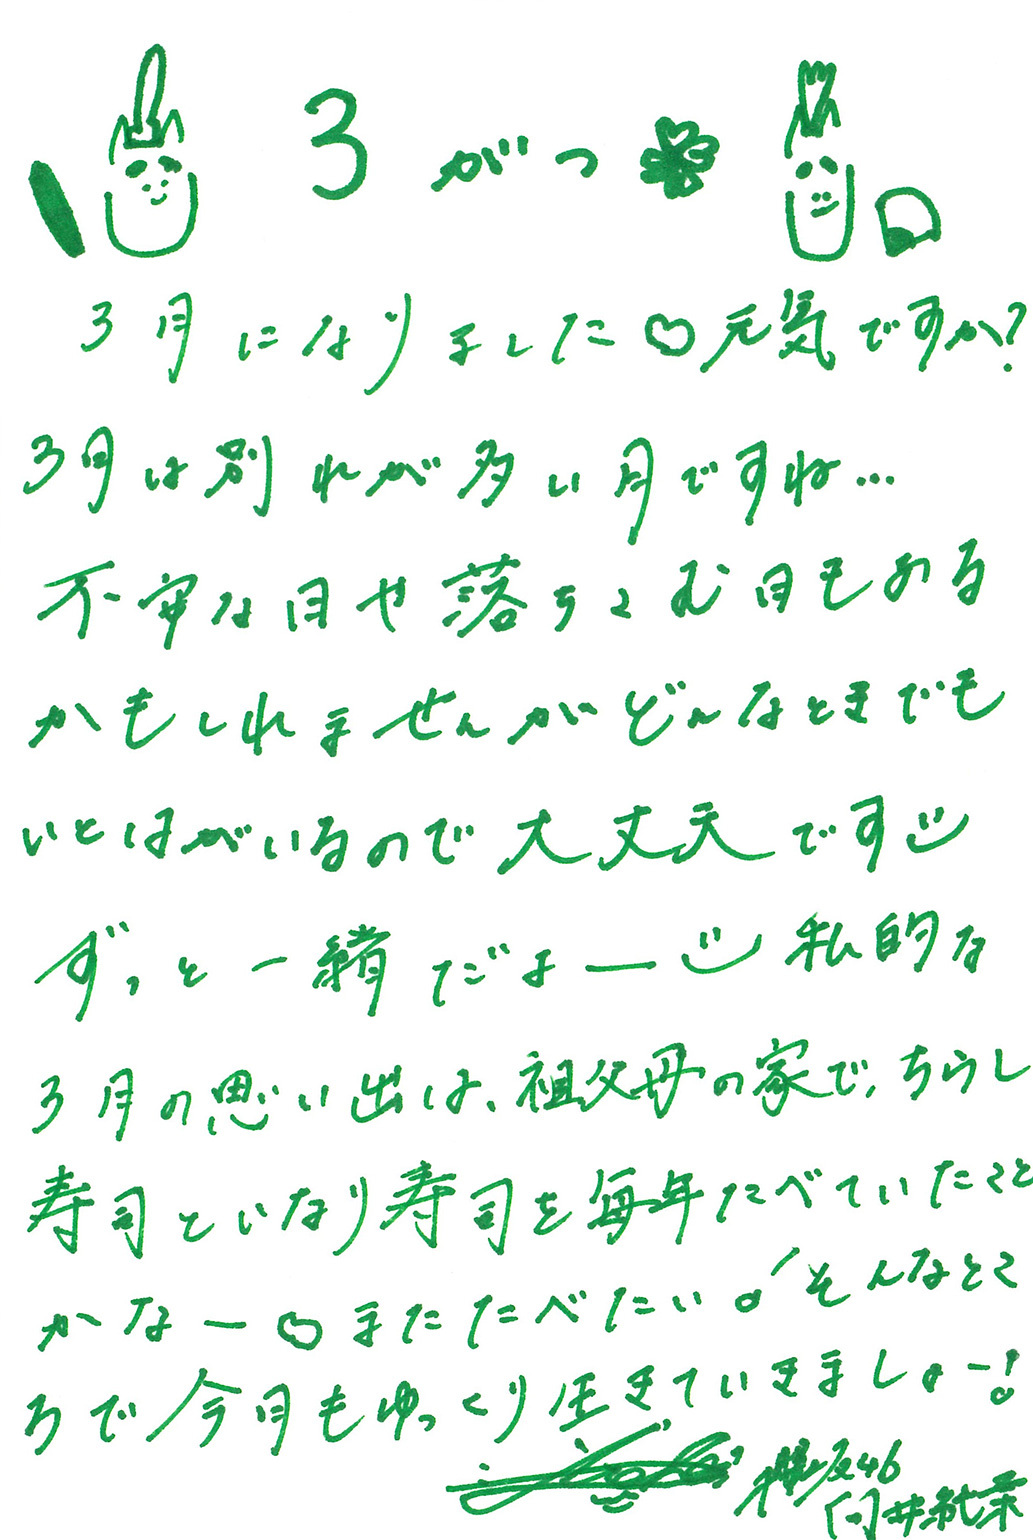 3がつ
3月になりました♡元気ですか?
3月は別れが多い月ですね…
不安な日や落ちこむ日もある
かもしれませんがどんなときでも
いとはがいるので大丈夫です
ずっと一緒だよー 私的な
3月の思い出は、祖父母の家で、ちらし
寿司といなり寿司を毎年たべていたこと
かなー♡またたべたい。そんなとこ
ろで今月もゆっくり生きていきましょー!
櫻坂46
向井純葉